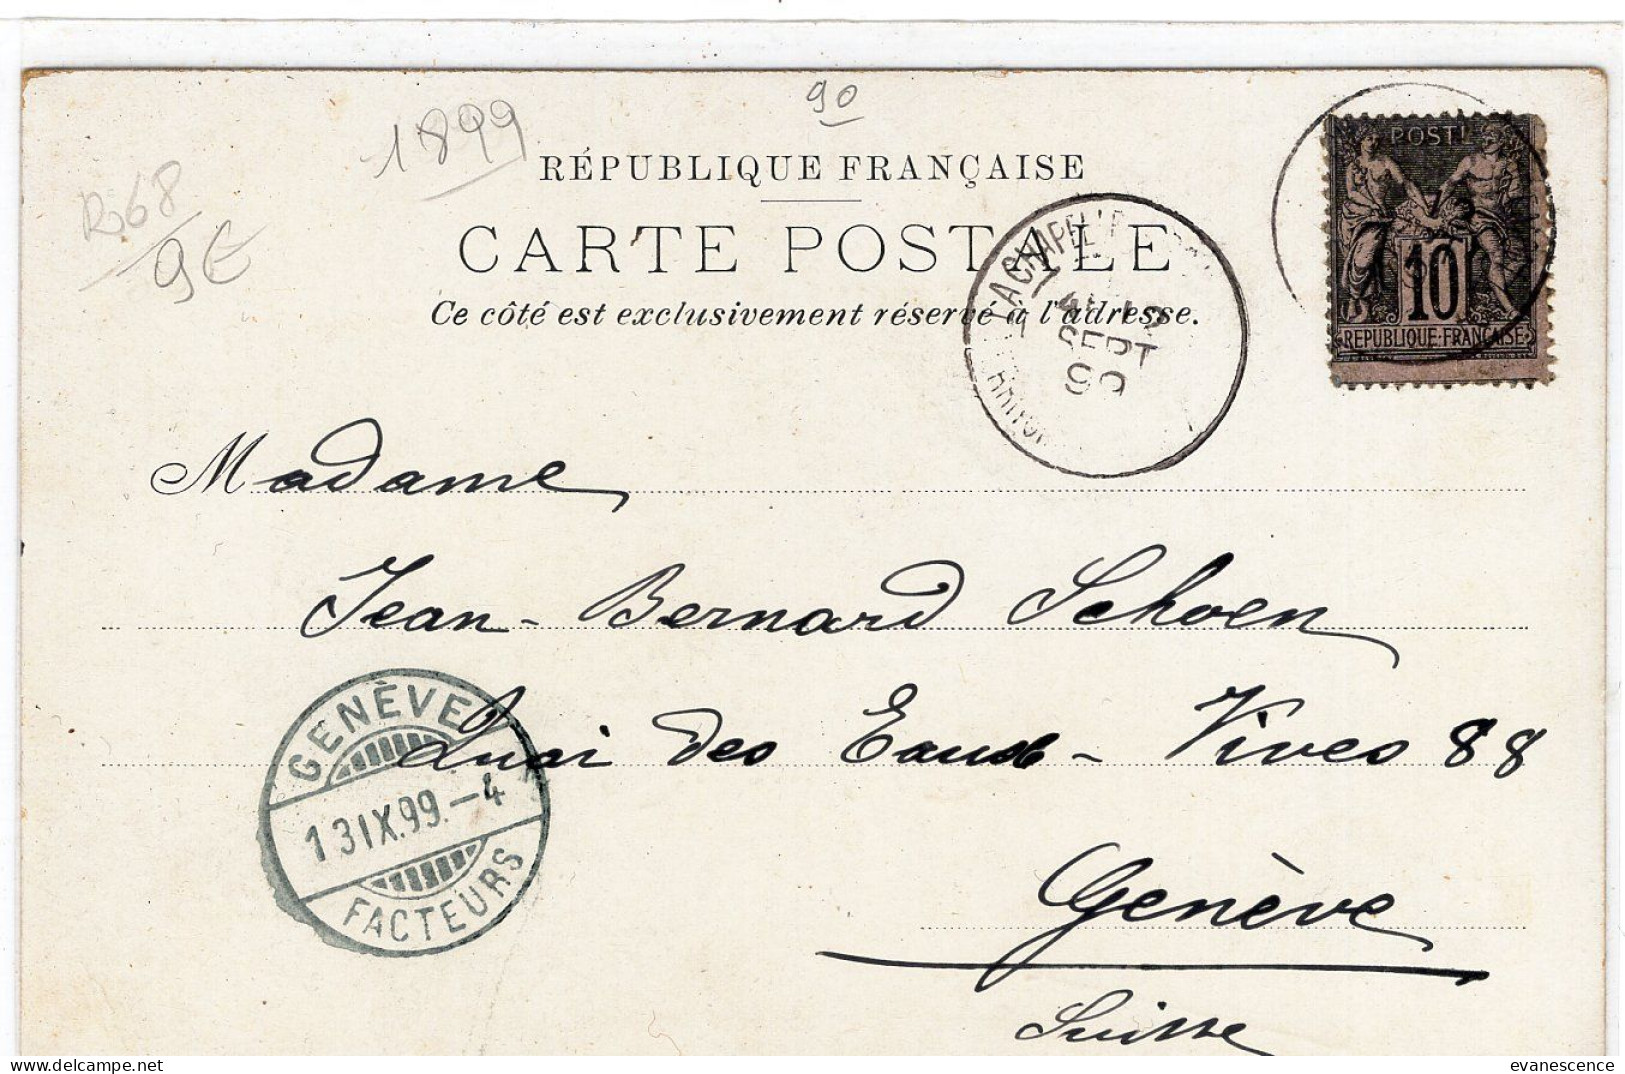 90
1899
R068
9€
RÉPUBLIQUE FRANÇAISE
CARTE POSTALE
Ce côté est exclusivement réservé à l'adresse.
POSTE
10
REPUBLIQUE FRANÇAISE
LA CHAPELLE
12
SEPT
99
Madame
Jean-Bernard Schoen
Quai des Eaux-Vives 88
Genève
Suisse
GENÈVE
13 IX.99.-4
FACTEURS
evanescence